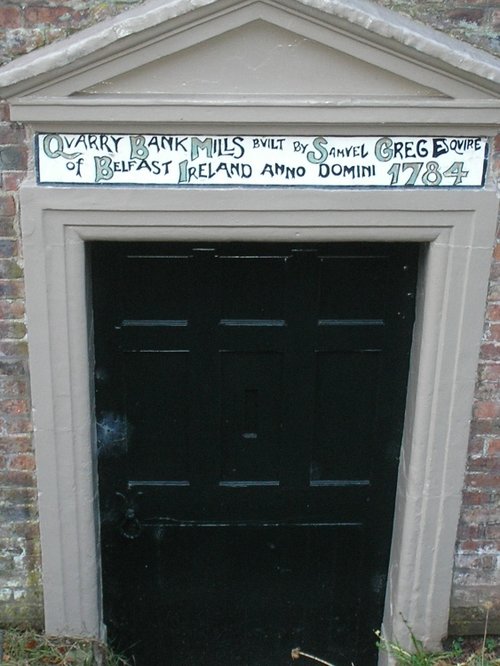 QUARRY BANK MILLS BVILT BY SAMVEL GREG ESQVIRE
of BELFAST IRELAND ANNO DOMINI 1784